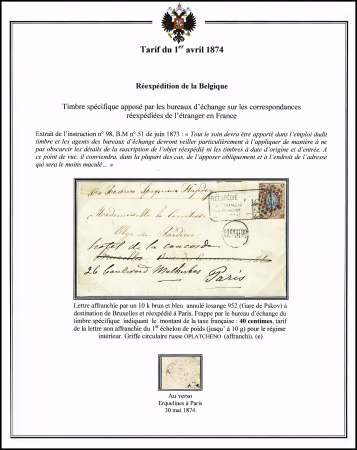 Tarif du 1er avril 1874
Réexpédition de la Belgique
Timbre spécifique apposé par les bureaux d'échange sur les correspondances
réexpédiées de l'étranger en France
Extrait de l'instruction n° 98, B.M n° 51 de juin 1873 : « Tout le soin devra être apporté dans l'emploi dudit
timbre et les agents des bureaux d'échange devront veiller particulièrement à l'appliquer de manière à ne
pas obscurcir les détails de la suscription de l'objet réexpédié ni les timbres à date d'origine et d'entrée. A
ce point de vue, il conviendra, dans la plupart des cas, de l'apposer obliquement et à l'endroit de l'adresse
qui sera le moins maculé... »
RÉEXPÉDIÉ
Mademoiselle la
hotel de la concorde
Bruxelles
26 boulevard Malesherbes Paris
Lettre affranchie par un 10 k brun et bleu annulé losange 952 (Gare de Pskov) à
destination de Bruxelles et réexpédié à Paris. Frappe par le bureau d'échange du
timbre spécifique indiquant le montant de la taxe française : 40 centimes, tarif
de la lettre non affranchie du 1er échelon de poids (jusqu' à 10 g) pour le régime
intérieur. Griffe circulaire russe OPLATCHENO (affranchi). (e)
Au verso
Erquelines à Paris
30 mai 1874.